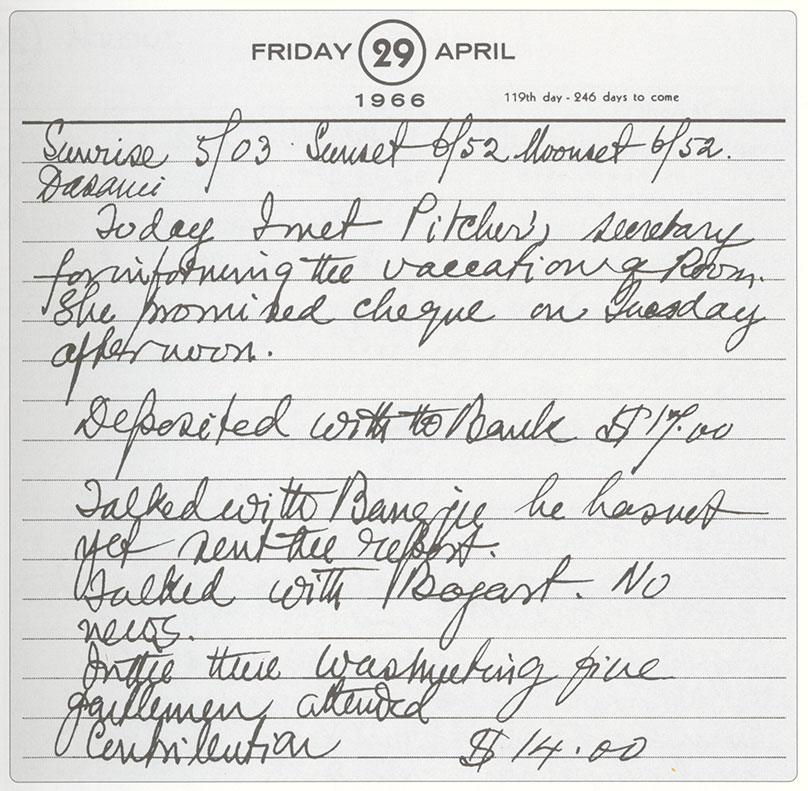 FRIDAY 29 APRIL
1966
119th day - 246 days to come
Sunrise 5/03 Sunset 6/52 Moonset 6/52.
Dasami
Today I met Pitcher's secretary
for informing the vaccation of Room.
She promised cheque on Tuesday
afternoon.
Deposited with to Bank $ 17.00
Talked with Banerjee he has not
yet sent the report.
Talked with Bogart. No
news.
In the there was meeting five
gentlemen attended
Contribution $ 14.00